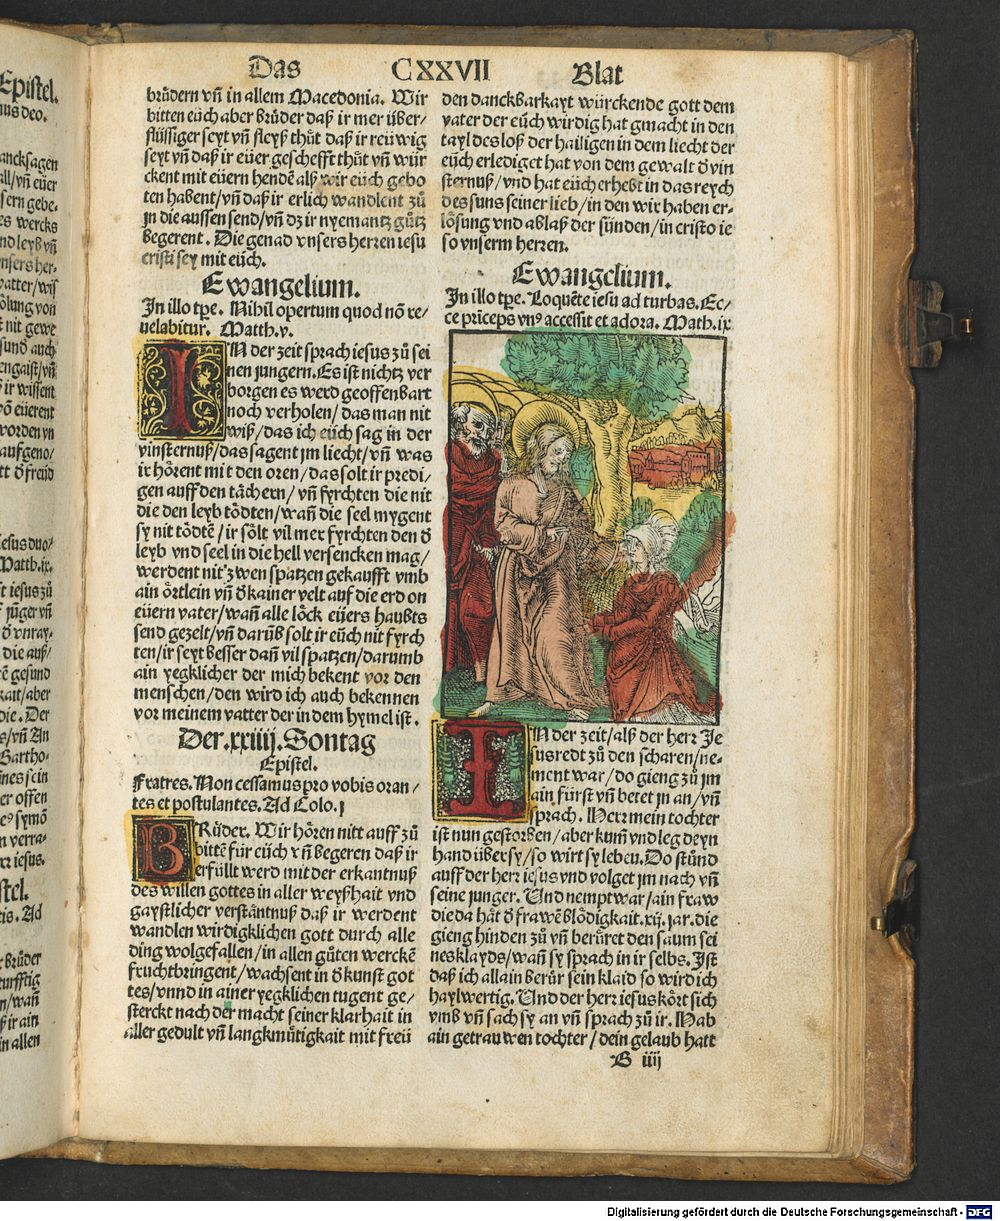 Epistel.
nus deo.
ancksagen
all/vñ eüer
sern gebe-
es wercks
nd leyb vñ
nsers her-
vatter/wis
ölung von
t nit gewe
sund auch
engaist/vñ
ir wissent
vō eüerent
worden vn
aufgeno/
tt d̄ freüd
iesus duo/
Matth.ix.
t iesus zů
jünger vñ
d̄ vnray-
die auß/
gesund
kait/aber
die. Der
s/vñ An
Bartho-
nes sein
er offen
symō
n verra-
rr iesus.
stel.
tis. Ad
Brüder
turfftig
n/wañ
ß ir ain
in allen
Das CXXVII Blat
brüdern vñ in allem Macedonia. Wir
bitten eüch aber brüder daß ir mer über/
flüssiger seyt vñ fleyß thůt daß ir reüwig
seyt vñ daß ir eüer geschefft thůt vñ wür
ckent mit eüern hendē alß wir eüch gebo
ten habent/vñ daß ir erlich wandlent zů
jn die aussen send/vñ dz ir nyemantz gůtz
begerent. Die genad vnsers herren iesu
cristi sey mit eüch.
Ewangelium.
In illo tp̄e. Nihil opertum quod nō re/
uelabitur. Matth.v.
IN der zeit sprach iesus zů sei
nen jungern. Es ist nichtz ver
borgen es werd geoffenbart
noch verholen/das man nit
wiß/das ich eüch sag in der
vinsternuß/das sagent jm liecht/vñ was
ir hörent mit den oren/das solt ir predi-
gen auff den tächern/vñ fyrchten die nit
die den leyb tödten/wañ die seel mygent
sy nit tödtē/ir sölt vil mer fyrchten den d̄
leyb vnd seel in die hell versencken mag/
werdent nit zwen spatzen gekaufft vmb
ain örtlein vñ d̄ kainer velt auf die erd on
eüern vater/wañ alle löck eüers haubts
send gezelt/vñ darūb solt ir eüch nit fyrch
ten/ir seyt besser dañ vil spatzen/darumb
ain yegklicher der mich bekent vor den
menschen/den wird ich auch bekennen
vor meinem vatter der in dem hymel ist.
Der.xxiiij.Sontag
Epistel.
Fratres. Non cessamus pro vobis oran/
tes et postulantes. Ad Colo.j
BRüder. Wir hören nitt auff zů
bittē für eüch vñ begeren daß ir
erfüllt werd mit der erkantnuß
des willen gottes in aller weyßhait vnd
gaystlicher verstäntnuß daß ir werdent
wandlen wirdigklichen gott durch alle
ding wolgefallen/in allen gůten werckē
fruchtbringent/wachsent in d̄ kunst got
tes/vnnd in ainer yegklichen tugent ge/
sterckt nach der macht seiner klarhait in
aller gedult vñ langkmůtigkait mit freü
den danckbarkayt würckende gott dem
vater der eüch wirdig hat gmacht in den
tayl des loß der hailigen in dem liecht der
eüch erlediget hat von dem gewalt d̄ vin
sternuß/vnd hat eüch erhebt in das reych
des suns seiner lieb/in den wir haben er-
lösung vnd ablaß der sünden/in cristo ie
so vnserm herren.
Ewangelium.
In illo tp̄e. Loquēte iesu ad turbas. Ec-
ce prīceps vnꝰ accessit et adora. Math.ix
IN der zeit/alß der herr Je
sus redt zů den scharen/ne-
ment war/do gieng zů jm
ain fürst vñ betet jn an/vñ
sprach. Herr mein tochter
ist nun gestorben/aber kum̄ vnd leg deyn
hand über sy/so wirt sy leben. Do stůnd
auff der herr iesus vnd volget jm nach vñ
seine junger. Und nempt war/ain fraw
die da hät d̄ frawē blödigkait.xij.jar.die
gieng hinden zů vñ berůret den saum sei
nes klayds/wañ sy sprach in ir selbs. Ist
daß ich allain berůr sein klaid so wird ich
haylwertig. Und der herr iesus kört sich
vmb vñ sach sy an vñ sprach zů ir. Hab
ain getrauwen tochter/dein gelaub hatt
B iiij
Digitalisierung gefördert durch die Deutsche Forschungsgemeinschaft - DFG